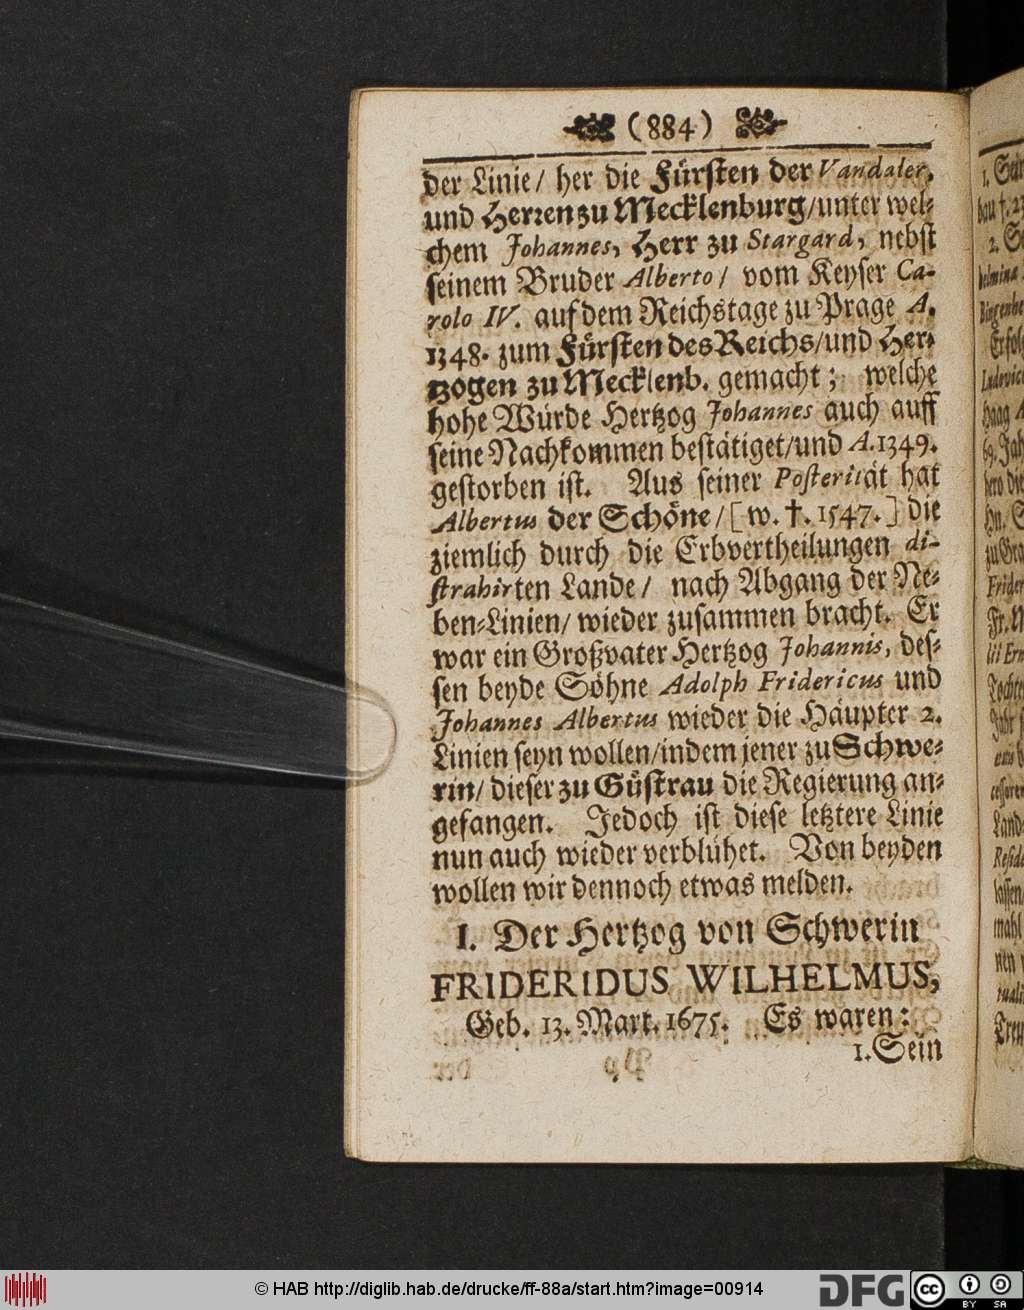 (884)
der Linie/ her die Fürsten der Vandaler,
und Herren zu Mecklenburg/unter wel⸗
chem Johannes, Herr zu Stargard, nebst
seinem Bruder Alberto/ vom Keyser Ca-
rolo IV. auf dem Reichstage zu Prage A.
1348. zum Fürsten des Reichs/und Her⸗
tzogen zu Mecklenb. gemacht; welche
hohe Würde Hertzog Johannes auch auff
seine Nachkommen bestätiget/und A. 1349.
gestorben ist. Aus seiner Posterität hat
Albertus der Schöne/ [w. †. 1547.] die
ziemlich durch die Erbvertheilungen di-
strahirten Lande/ nach Abgang der Ne⸗
ben⸗Linien/ wieder zusammen bracht. Er
war ein Großvater Hertzog Johannis, des⸗
sen beyde Söhne Adolph Fridericus und
Johannes Albertus wieder die Häupter 2.
Linien seyn wollen/indem jener zu Schwe⸗
rin/ dieser zu Güstrau die Regierung an⸗
gefangen. Jedoch ist diese letztere Linie
nun auch wieder verblühet. Von beyden
wollen wir dennoch etwas melden.
I. Der Hertzog von Schwerin
FRIDERIDUS WILHELMUS,
Geb. 13. Mart. 1675. Es waren:
1. Sein
© HAB http://diglib.hab.de/drucke/ff-88a/start.htm?image=00914
DFG
cc
BY SA